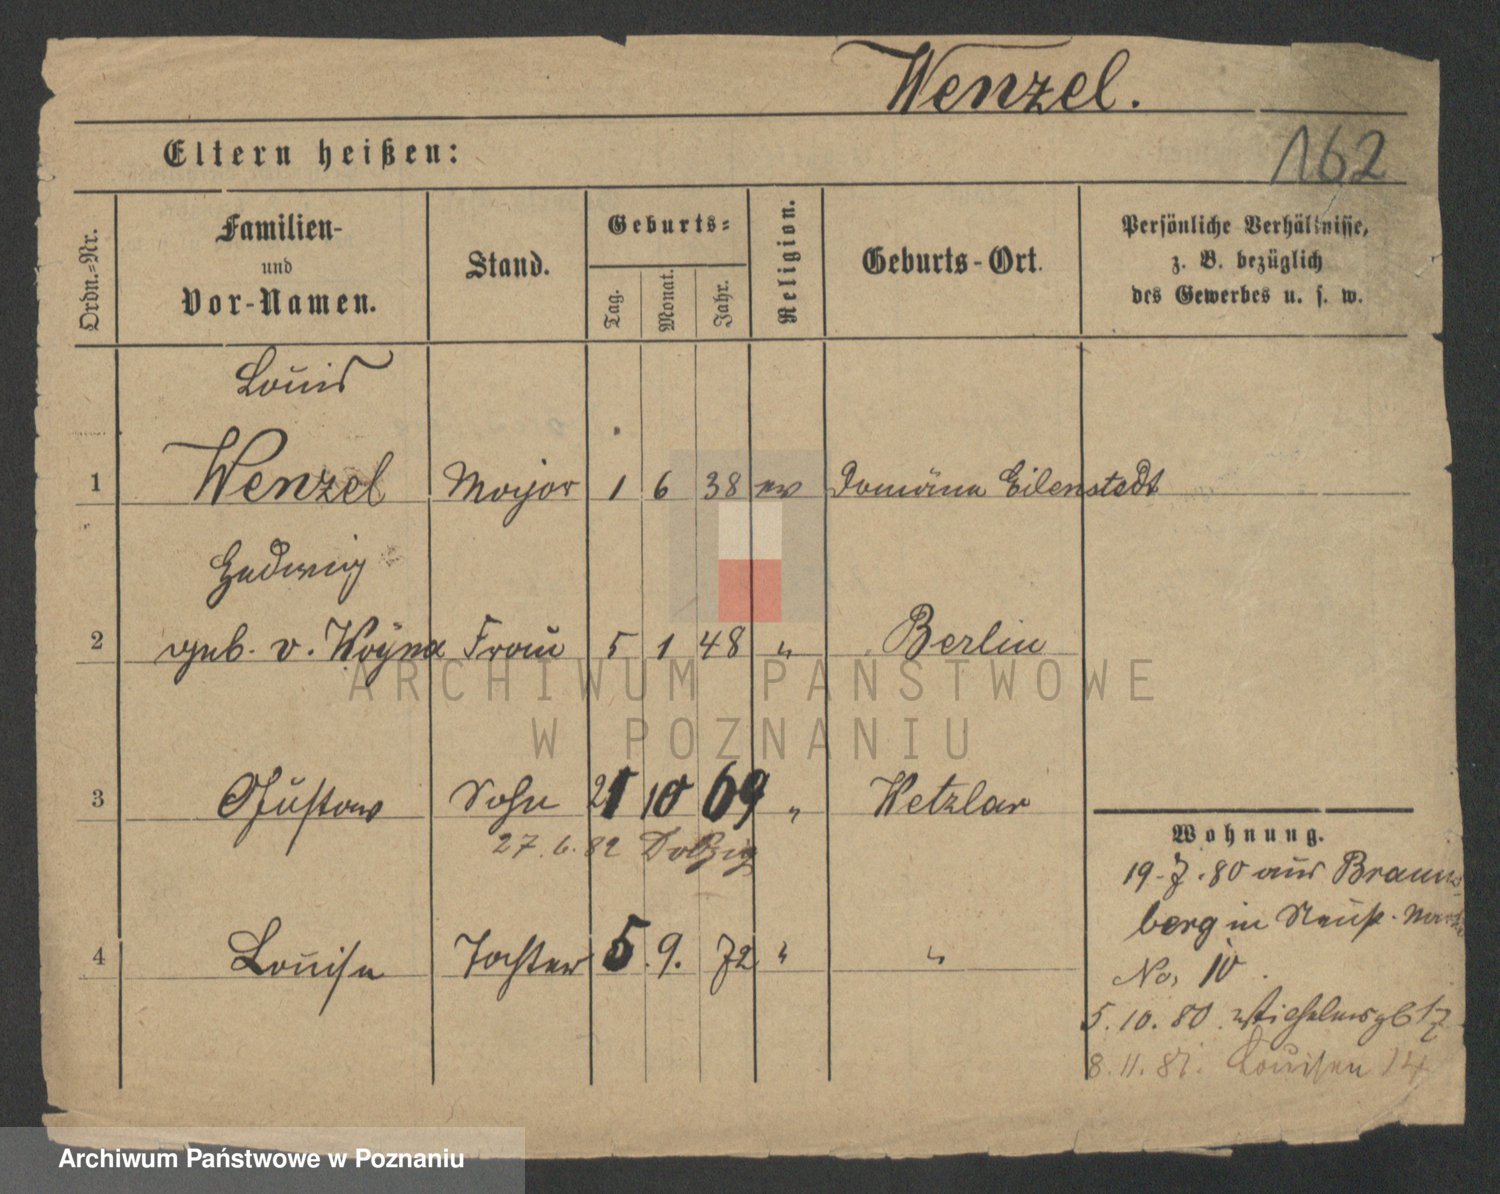 Wenzel.
162
Eltern heißen:
Ordn.-Nr.
Familien-
und
Vor-Namen.
Stand.
Geburts-
Tag.
Monat.
Jahr.
Religion.
Geburts-Ort.
Persönliche Verhältnisse,
z. B. bezüglich
des Gewerbes u. s. w.
Louis
1 Wenzel Major 1 6 38 ev Domäne Eilenstedt
Hedwig
2 geb. v. Woyna Frau 5 1 48 " Berlin
3 Gustav Sohn 21 10 69 " Wetzlar
27. 6. 82 Dolzig
4 Louise Tochter 5. 9. 72 " "
Wohnung.
19. 7. 80 aus Brauns-
berg in Neust. Markt
No. 10.
5. 10. 80. Wilhelmspl 17
8. 11. 81. Louisen 14
ARCHIWUM PAŃSTWOWE
W POZNANIU
Archiwum Państwowe w Poznaniu